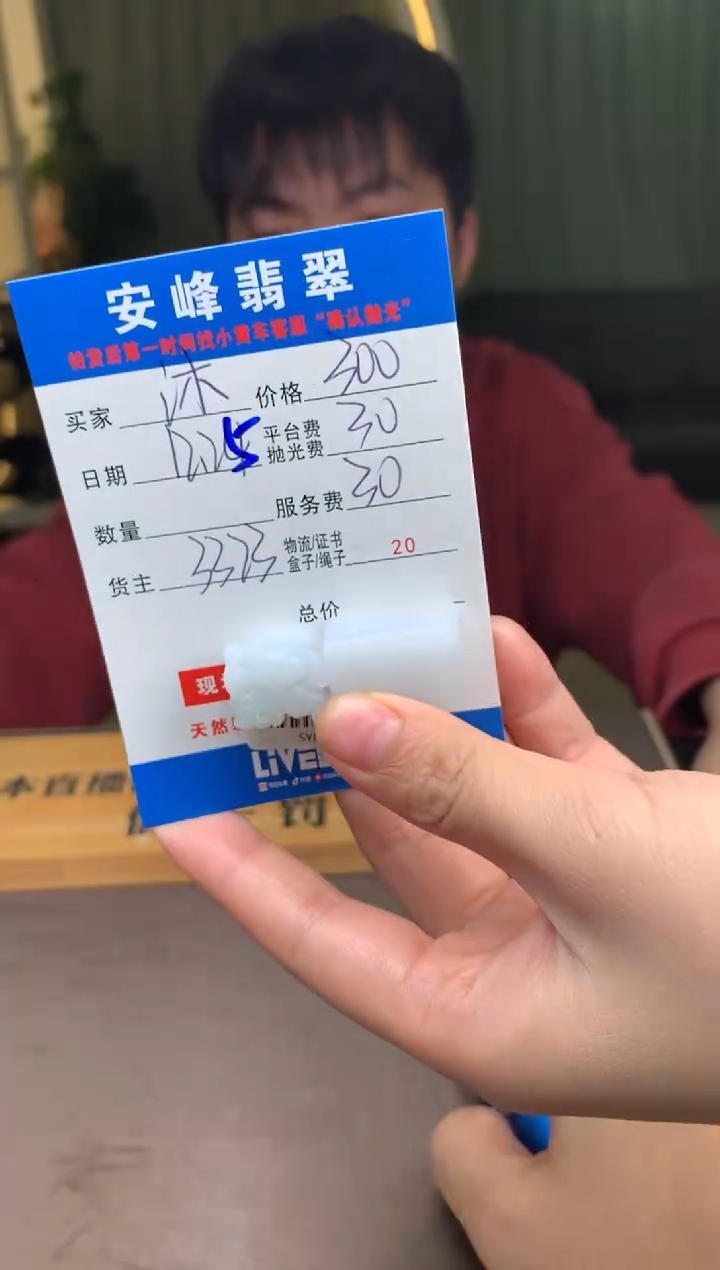 安峰翡翠
拍货后第一时间找小黄车客服“确认抛光”
买家 沐 价格 300
日期 平台费 抛光费 30
数量 服务费 30
货主 3373 物流/证书 盒子/绳子 20
总价
现
天然
LIVE
本直播